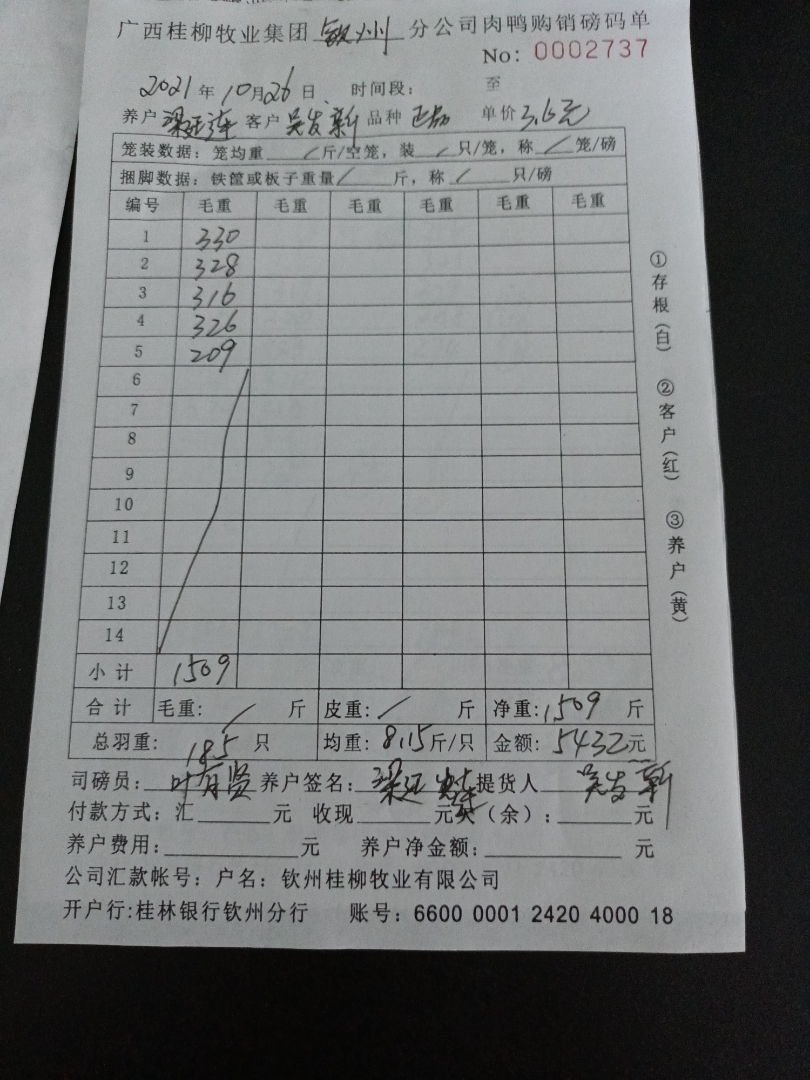 广西桂柳牧业集团 钦州 分公司肉鸭购销磅码单
No: 0002737
2021 年 10 月 26 日 时间段: 至
养户 梁廷连 客户 吴发新 品种 正品 单价 3.6元
笼装数据: 笼均重 / 斤/空笼, 装 / 只/笼, 称 / 笼/磅
捆脚数据: 铁筐或板子重量 / 斤, 称 / 只/磅
编号 毛重 毛重 毛重 毛重 毛重 毛重
1 330
2 328
3 316
4 326
5 209
6
7
8
9
10
11
12
13
14
小计 1509
合计 毛重: / 斤 皮重: / 斤 净重: 1509 斤
总羽重: 185 只 均重: 8.15 斤/只 金额: 5432 元
司磅员: 叶有贤 养户签名: 梁廷连 提货人 吴发新
付款方式: 汇 元 收现 元 (余): 元
养户费用: 元 养户净金额: 元
公司汇款帐号: 户名: 钦州桂柳牧业有限公司
开户行:桂林银行钦州分行 账号: 6600 0001 2420 4000 18
①存根(白) ②客户(红) ③养户(黄)